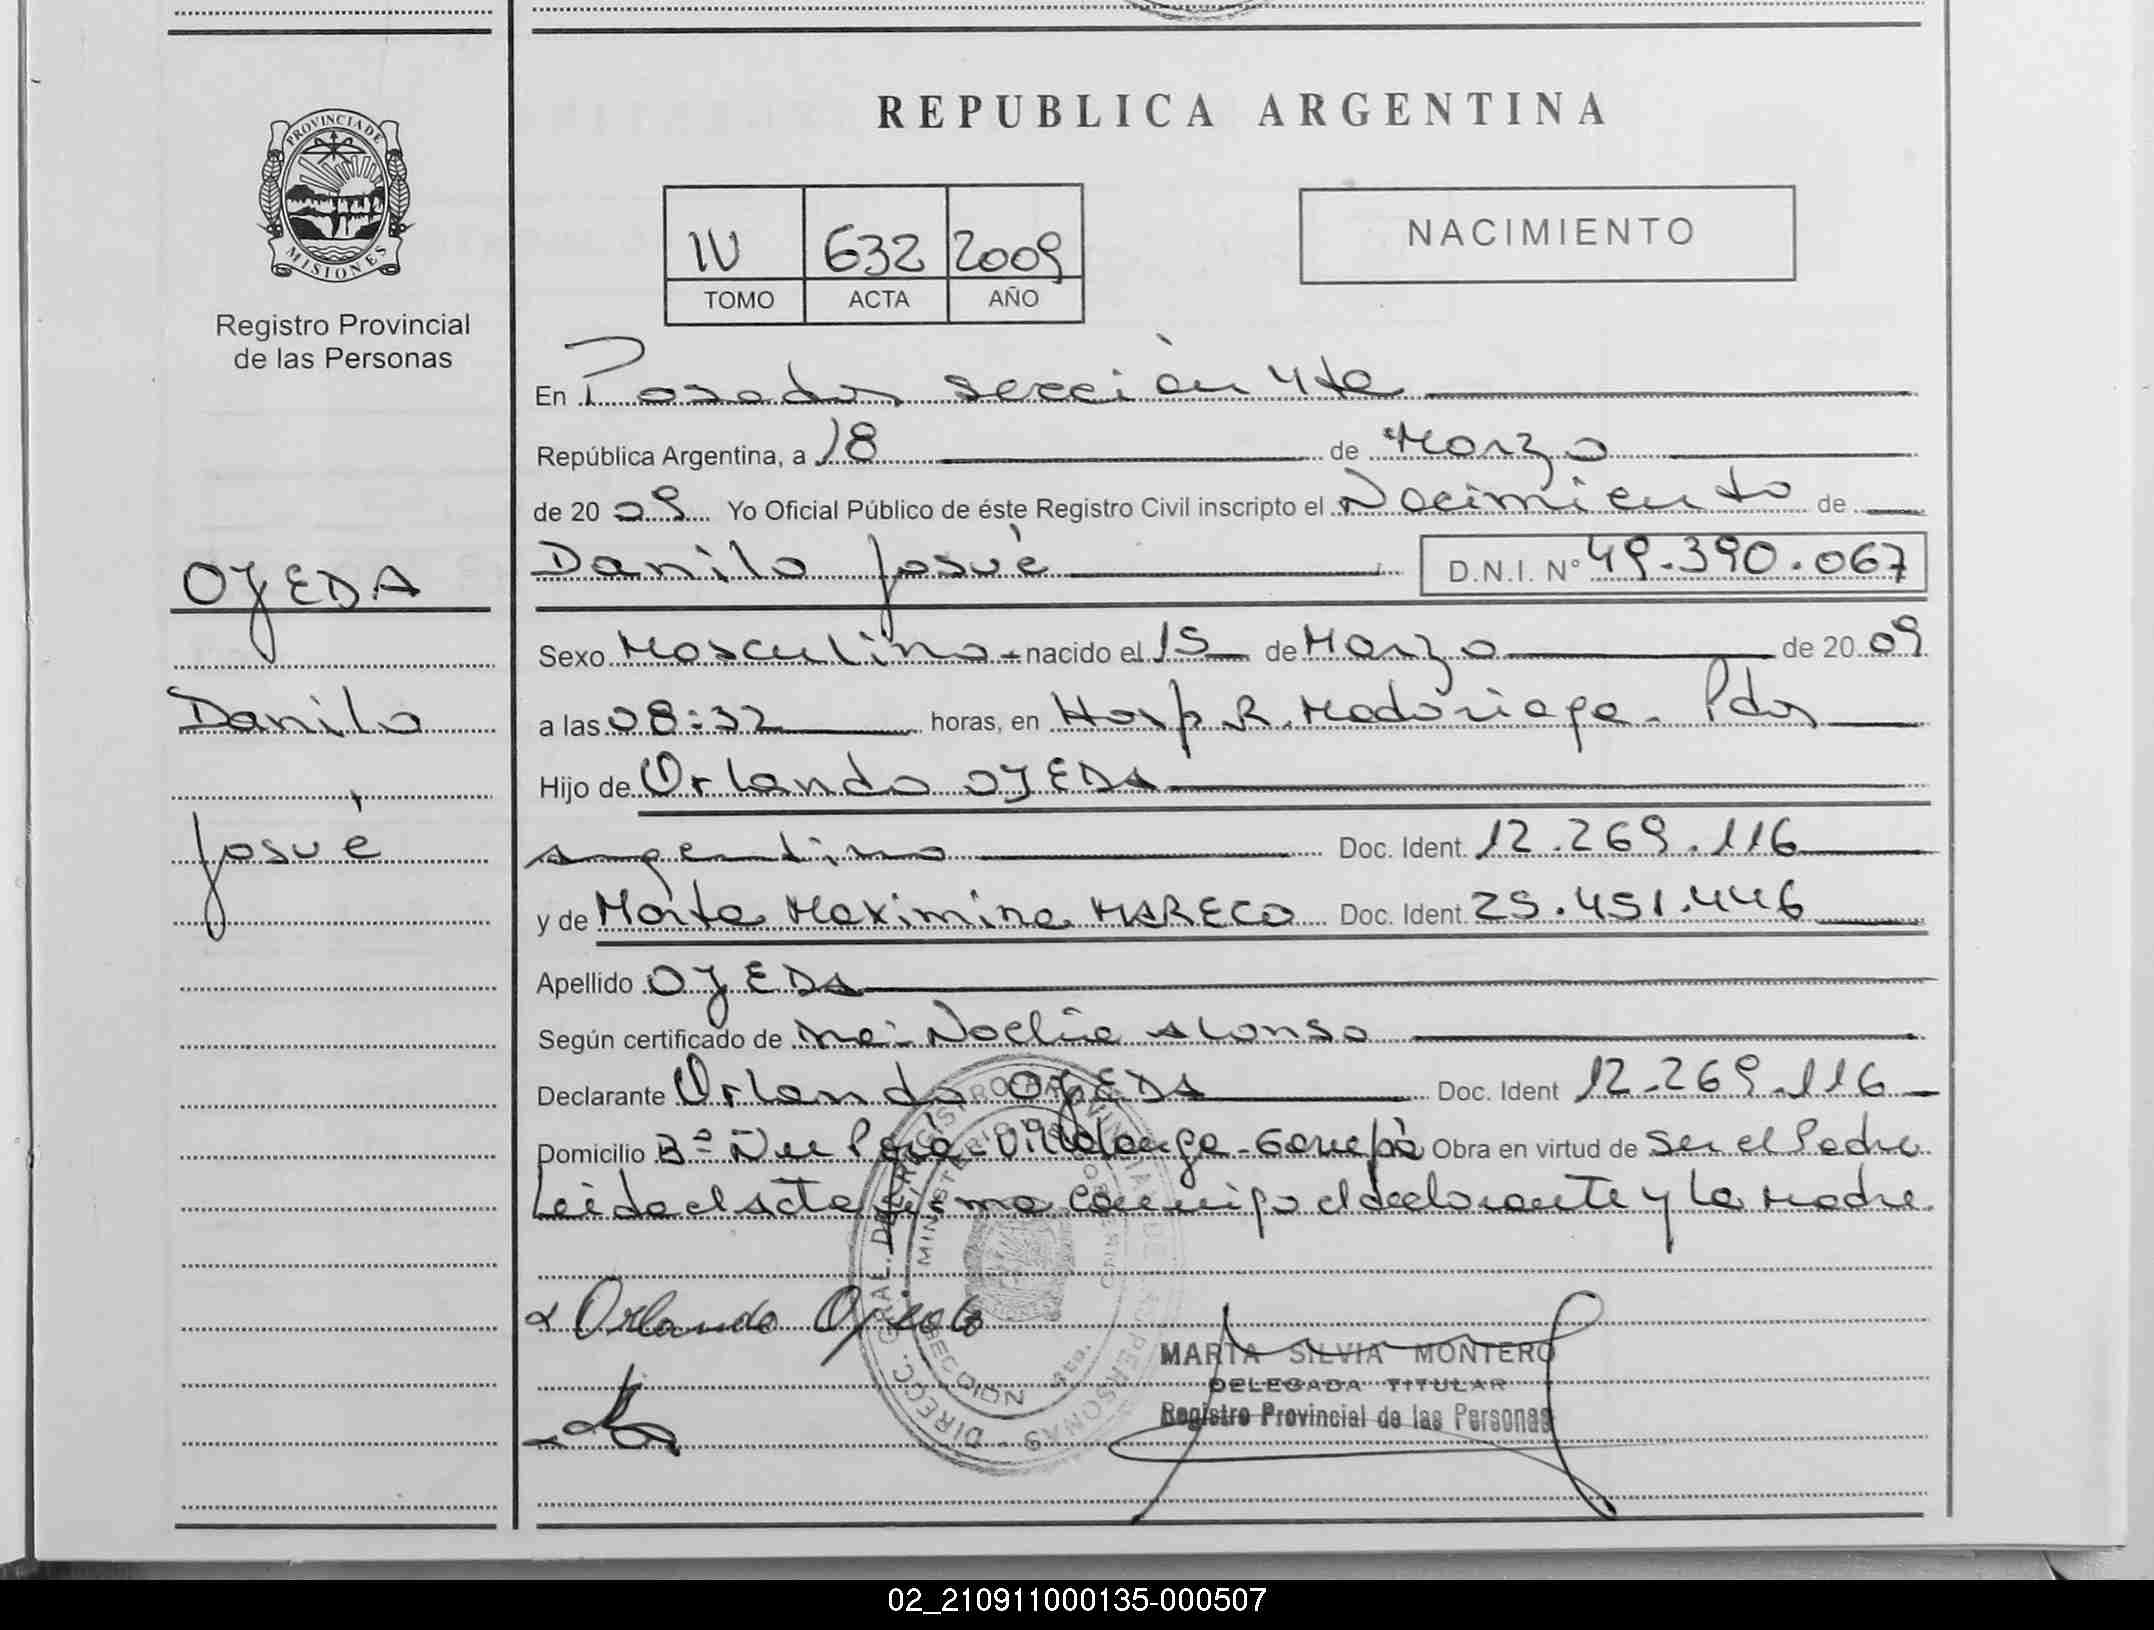 PROVINCIA DE
MISIONES
Registro Provincial
de las Personas
OJEDA
Danilo
Josué
REPUBLICA ARGENTINA
IV 632 2009
TOMO ACTA AÑO
NACIMIENTO
En Posadas sección 4ta
República Argentina, a 18 de Marzo
de 2009 Yo Oficial Público de éste Registro Civil inscripto el Nacimiento de
Danilo Josué D.N.I. N° 49.390.067
Sexo Masculino - nacido el 15 de Marzo de 2009
a las 08:32 horas, en Hosp R. Madariaga - Pdas
Hijo de Orlando OJEDA
argentino Doc. Ident. 12.269.116
y de Marta Maximina MARECO Doc. Ident. 25.451.446
Apellido OJEDA
Según certificado de Noelia Alonso
Declarante Orlando OJEDA Doc. Ident 12.269.116
Domicilio B° Ñu Porá - Villalonga - Garupá Obra en virtud de ser el Padre
Leida el acta firma conmigo el declarante y la madre
Orlando Ojeda
MARTA SILVIA MONTERO
DELEGADA TITULAR
Registro Provincial de las Personas
02_210911000135-000507